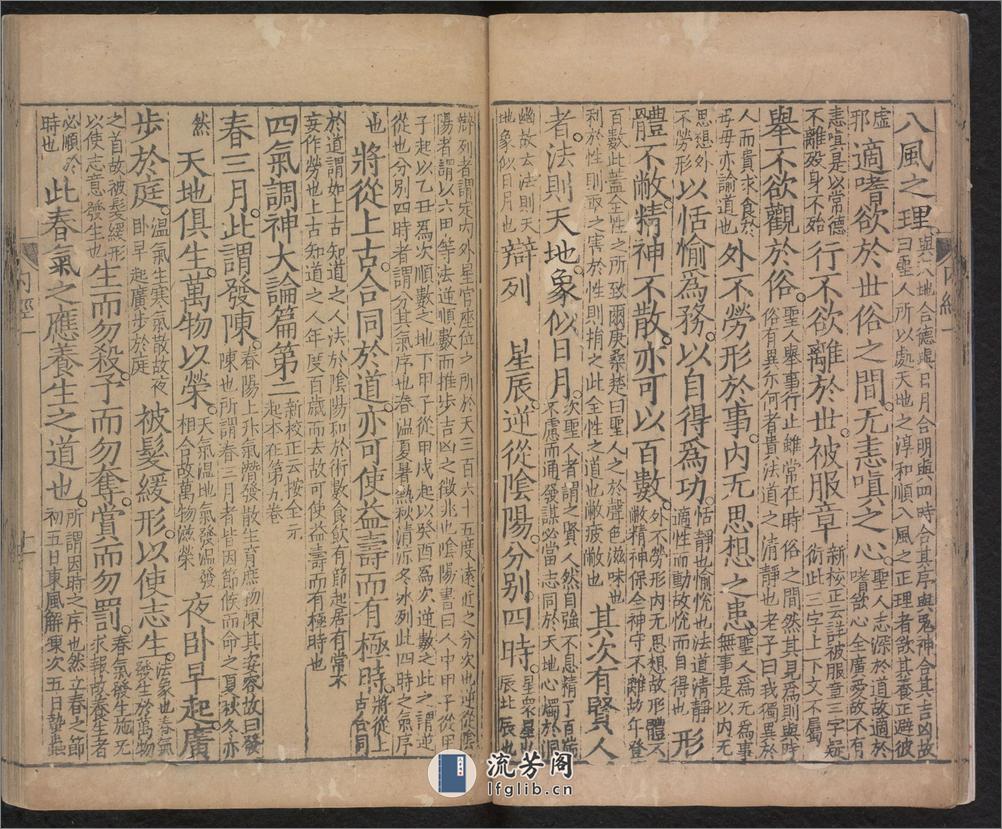 八風之理與天地合德與日月合明與四時合其序與鬼神合其吉凶故曰聖人所以處天地之淳和順八風之正理者欲其養正避彼
虛邪適嗜欲於世俗之間无恚嗔之心聖人志深於道故適於嗜欲心全廣愛故不有
恚嗔是以常德不離歿身不殆行不欲離於世被服章新校正云詳被服章三字疑衍此三字上下文不屬
舉不欲觀於俗聖人舉事行止雖常在時俗之間然其見爲則與時俗有異亦何者貴法道之清靜也老子曰我獨異於
人而貴求食於母母亦諭道也外不勞形於事內无思想之患聖人爲无爲事無事是以內无
思想外不勞形以恬愉爲務以自得爲功恬靜也愉悅也法道清靜適性而動故悅而自得也形
體不敝精神不散亦可以百數外不勞形內无思想故形體不敝精神保全神守不離故年登
百數此蓋全性之所致爾庚桑楚曰聖人之於聲色滋味也利於性則取之害於性則捐之此全性之道也敝疲敝也其次有賢人
者法則天地象似日月次聖人者謂之賢人然自強不息精了百端不慮而通發謀必當志同於天地心燭於洞
幽故云法則天地象似日月也辯列星辰逆從陰陽分別四時星衆星也辰北辰也
辯列者謂定內外星官座位之所於天三百六十五度遠近之分次也逆從陰陽者謂以六甲等法逆順數而推步吉凶之徵兆也陰陽書曰人中甲子從甲
子起以乙丑爲次順數之地下甲子從甲戌起以癸酉爲次逆數之此之謂逆從也分別四時者謂分其氣序也春溫夏暑熱秋清涼冬冰冽此四時之氣序
也將從上古合同於道亦可使益壽而有極時將從上古合同
於道謂如上古知道之人法於陰陽和於術數食飲有節起居有常不妄作勞也上古知道之人年度百歲而去故可使益壽而有極時也
四氣調神大論篇第二新校正云按全元起本在第九卷
春三月此謂發陳春陽上升氣潛發散生育庶物陳其姿容故曰發陳也所謂春三月者皆因節候而命之夏秋冬亦
然天地俱生萬物以榮天氣溫地氣發溫發相合故萬物滋榮夜臥早起廣
步於庭溫氣生寒氣散故夜臥早起廣步於庭被髮緩形以使志生法象也春氣發生於萬物
之首故被髮緩形以使志意發生也生而勿殺予而勿奪賞而勿罰春氣發生施无求報故養生者
必順於時也此春氣之應養生之道也所謂因時之序也然立春之節初五日東風解凍次五日蟄蟲
流芳阁
lfglib.cn